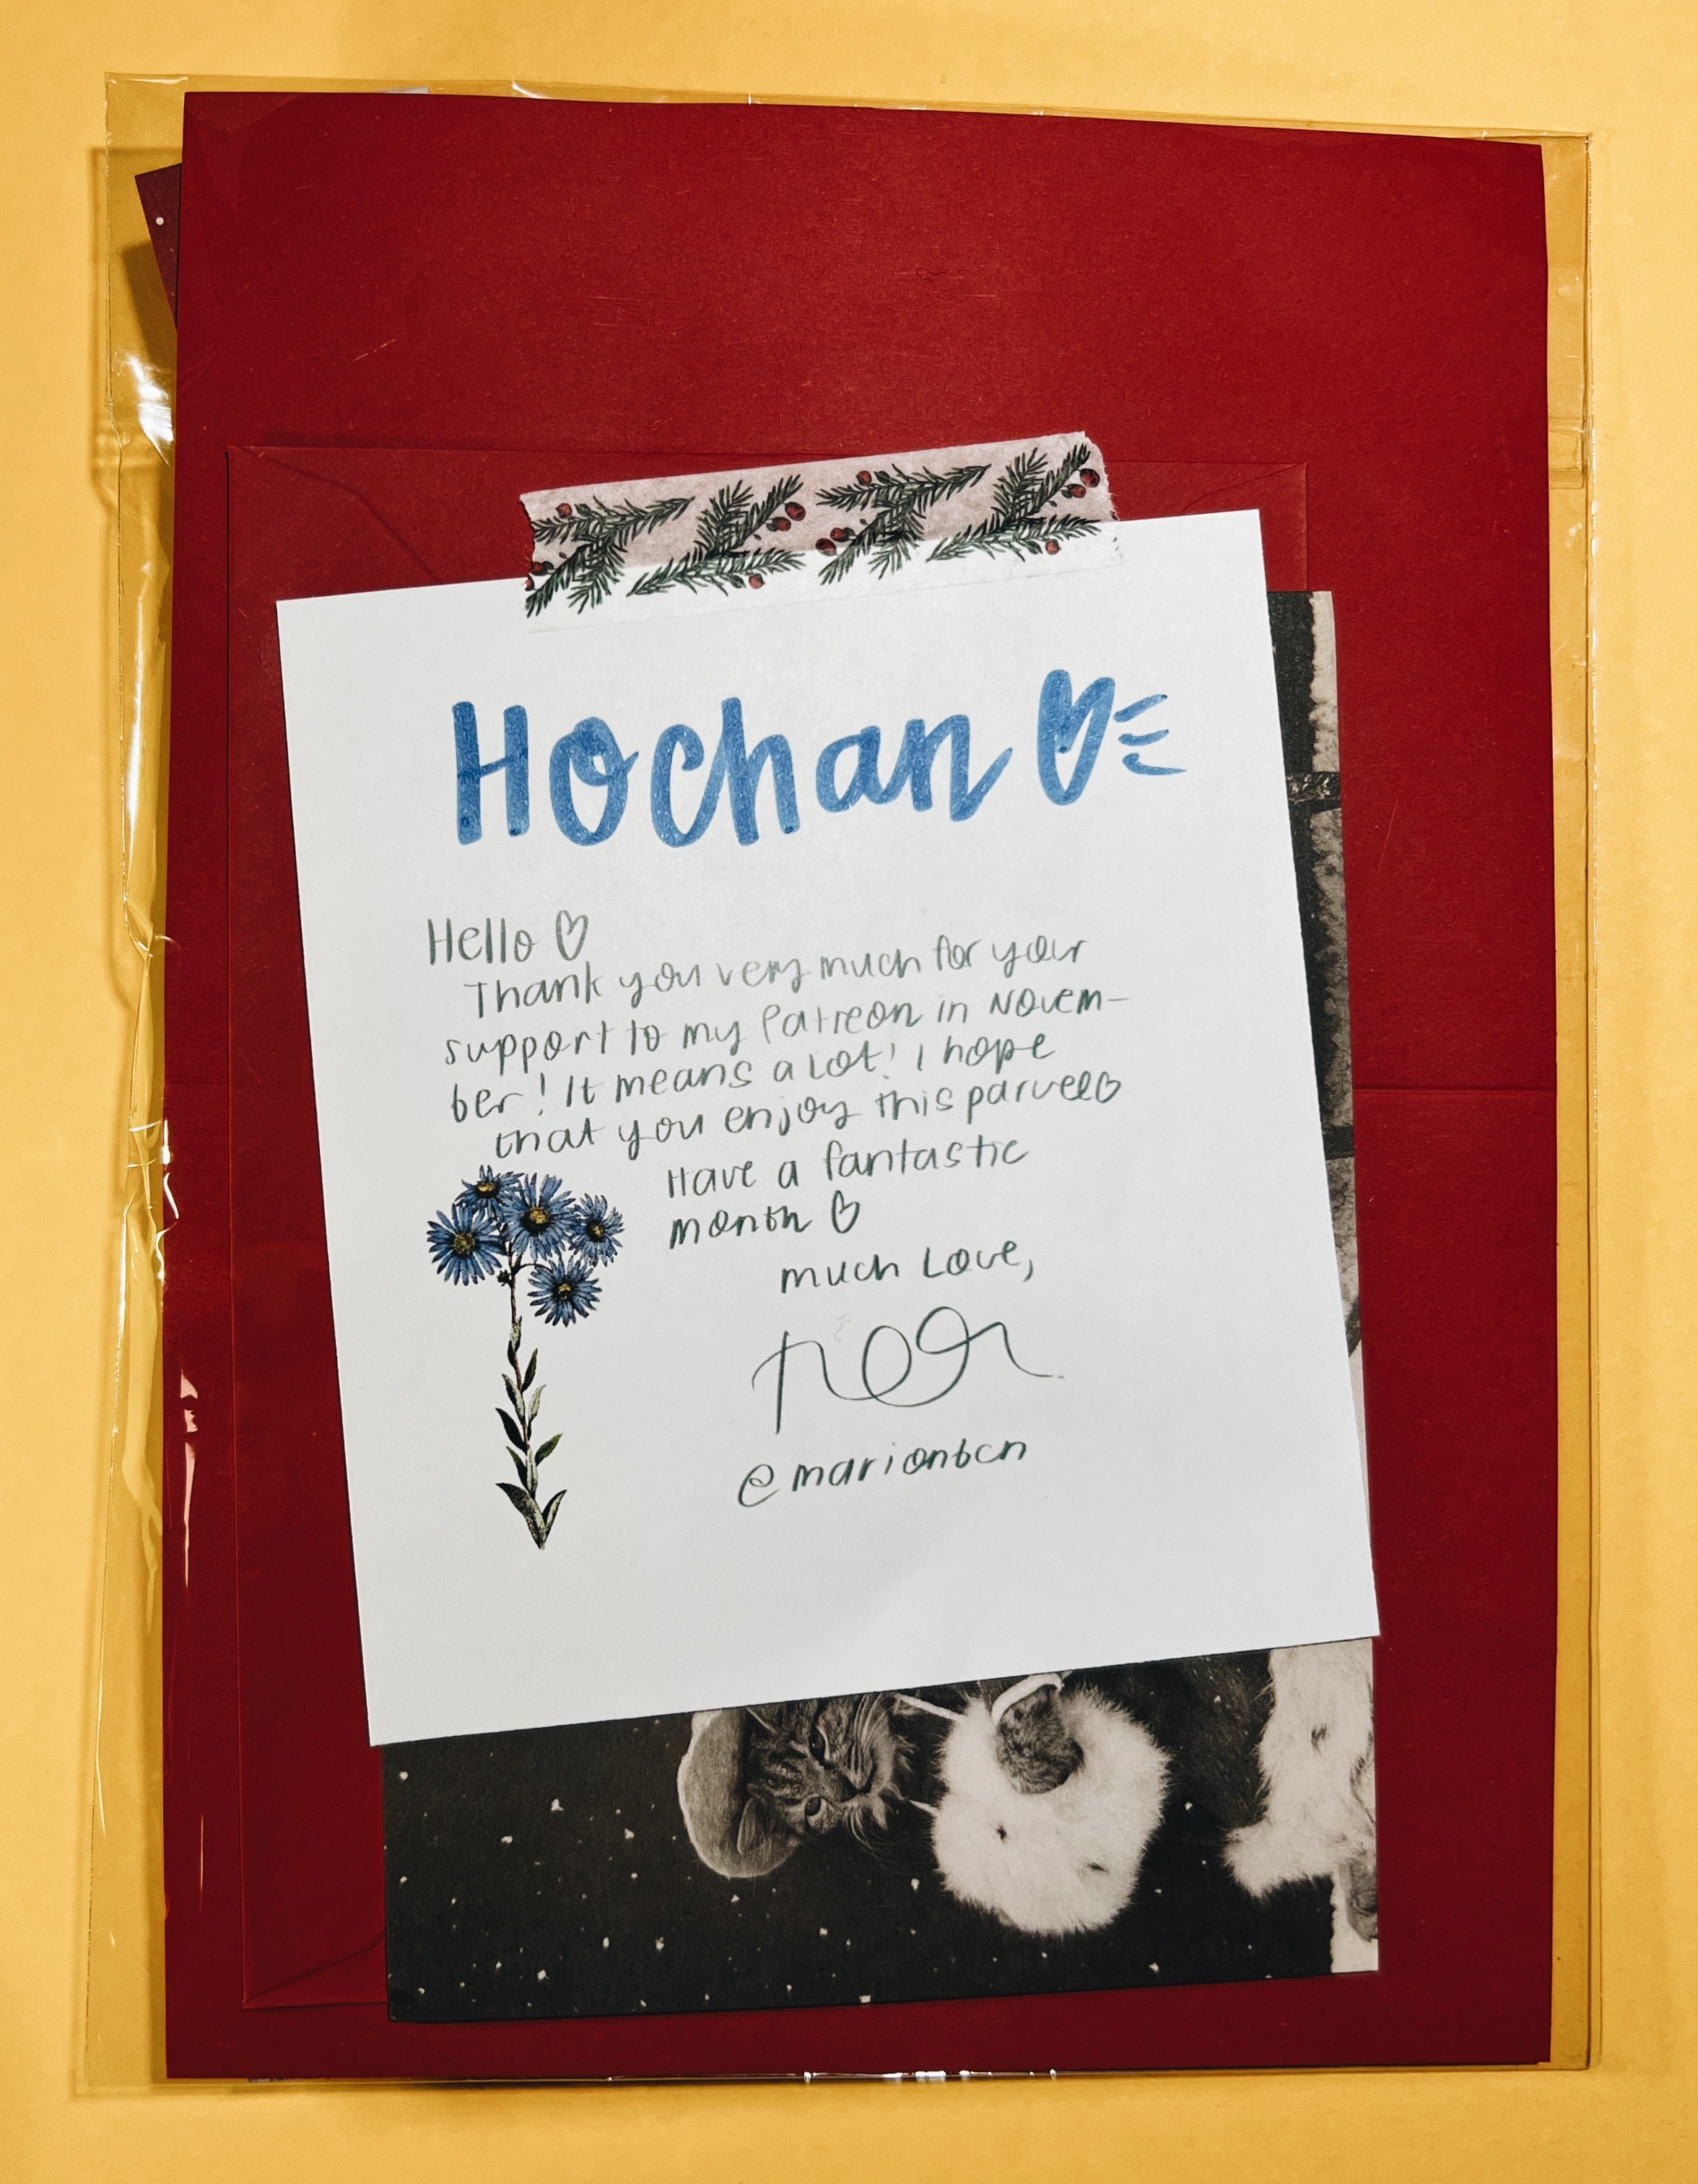 Hochan ♡
Hello ♡
Thank you very much for your
support to my Patreon in Novem-
ber! It means a lot! I hope
that you enjoy this parcel♡
Have a fantastic
month ♡
much Love,
@marionbcn